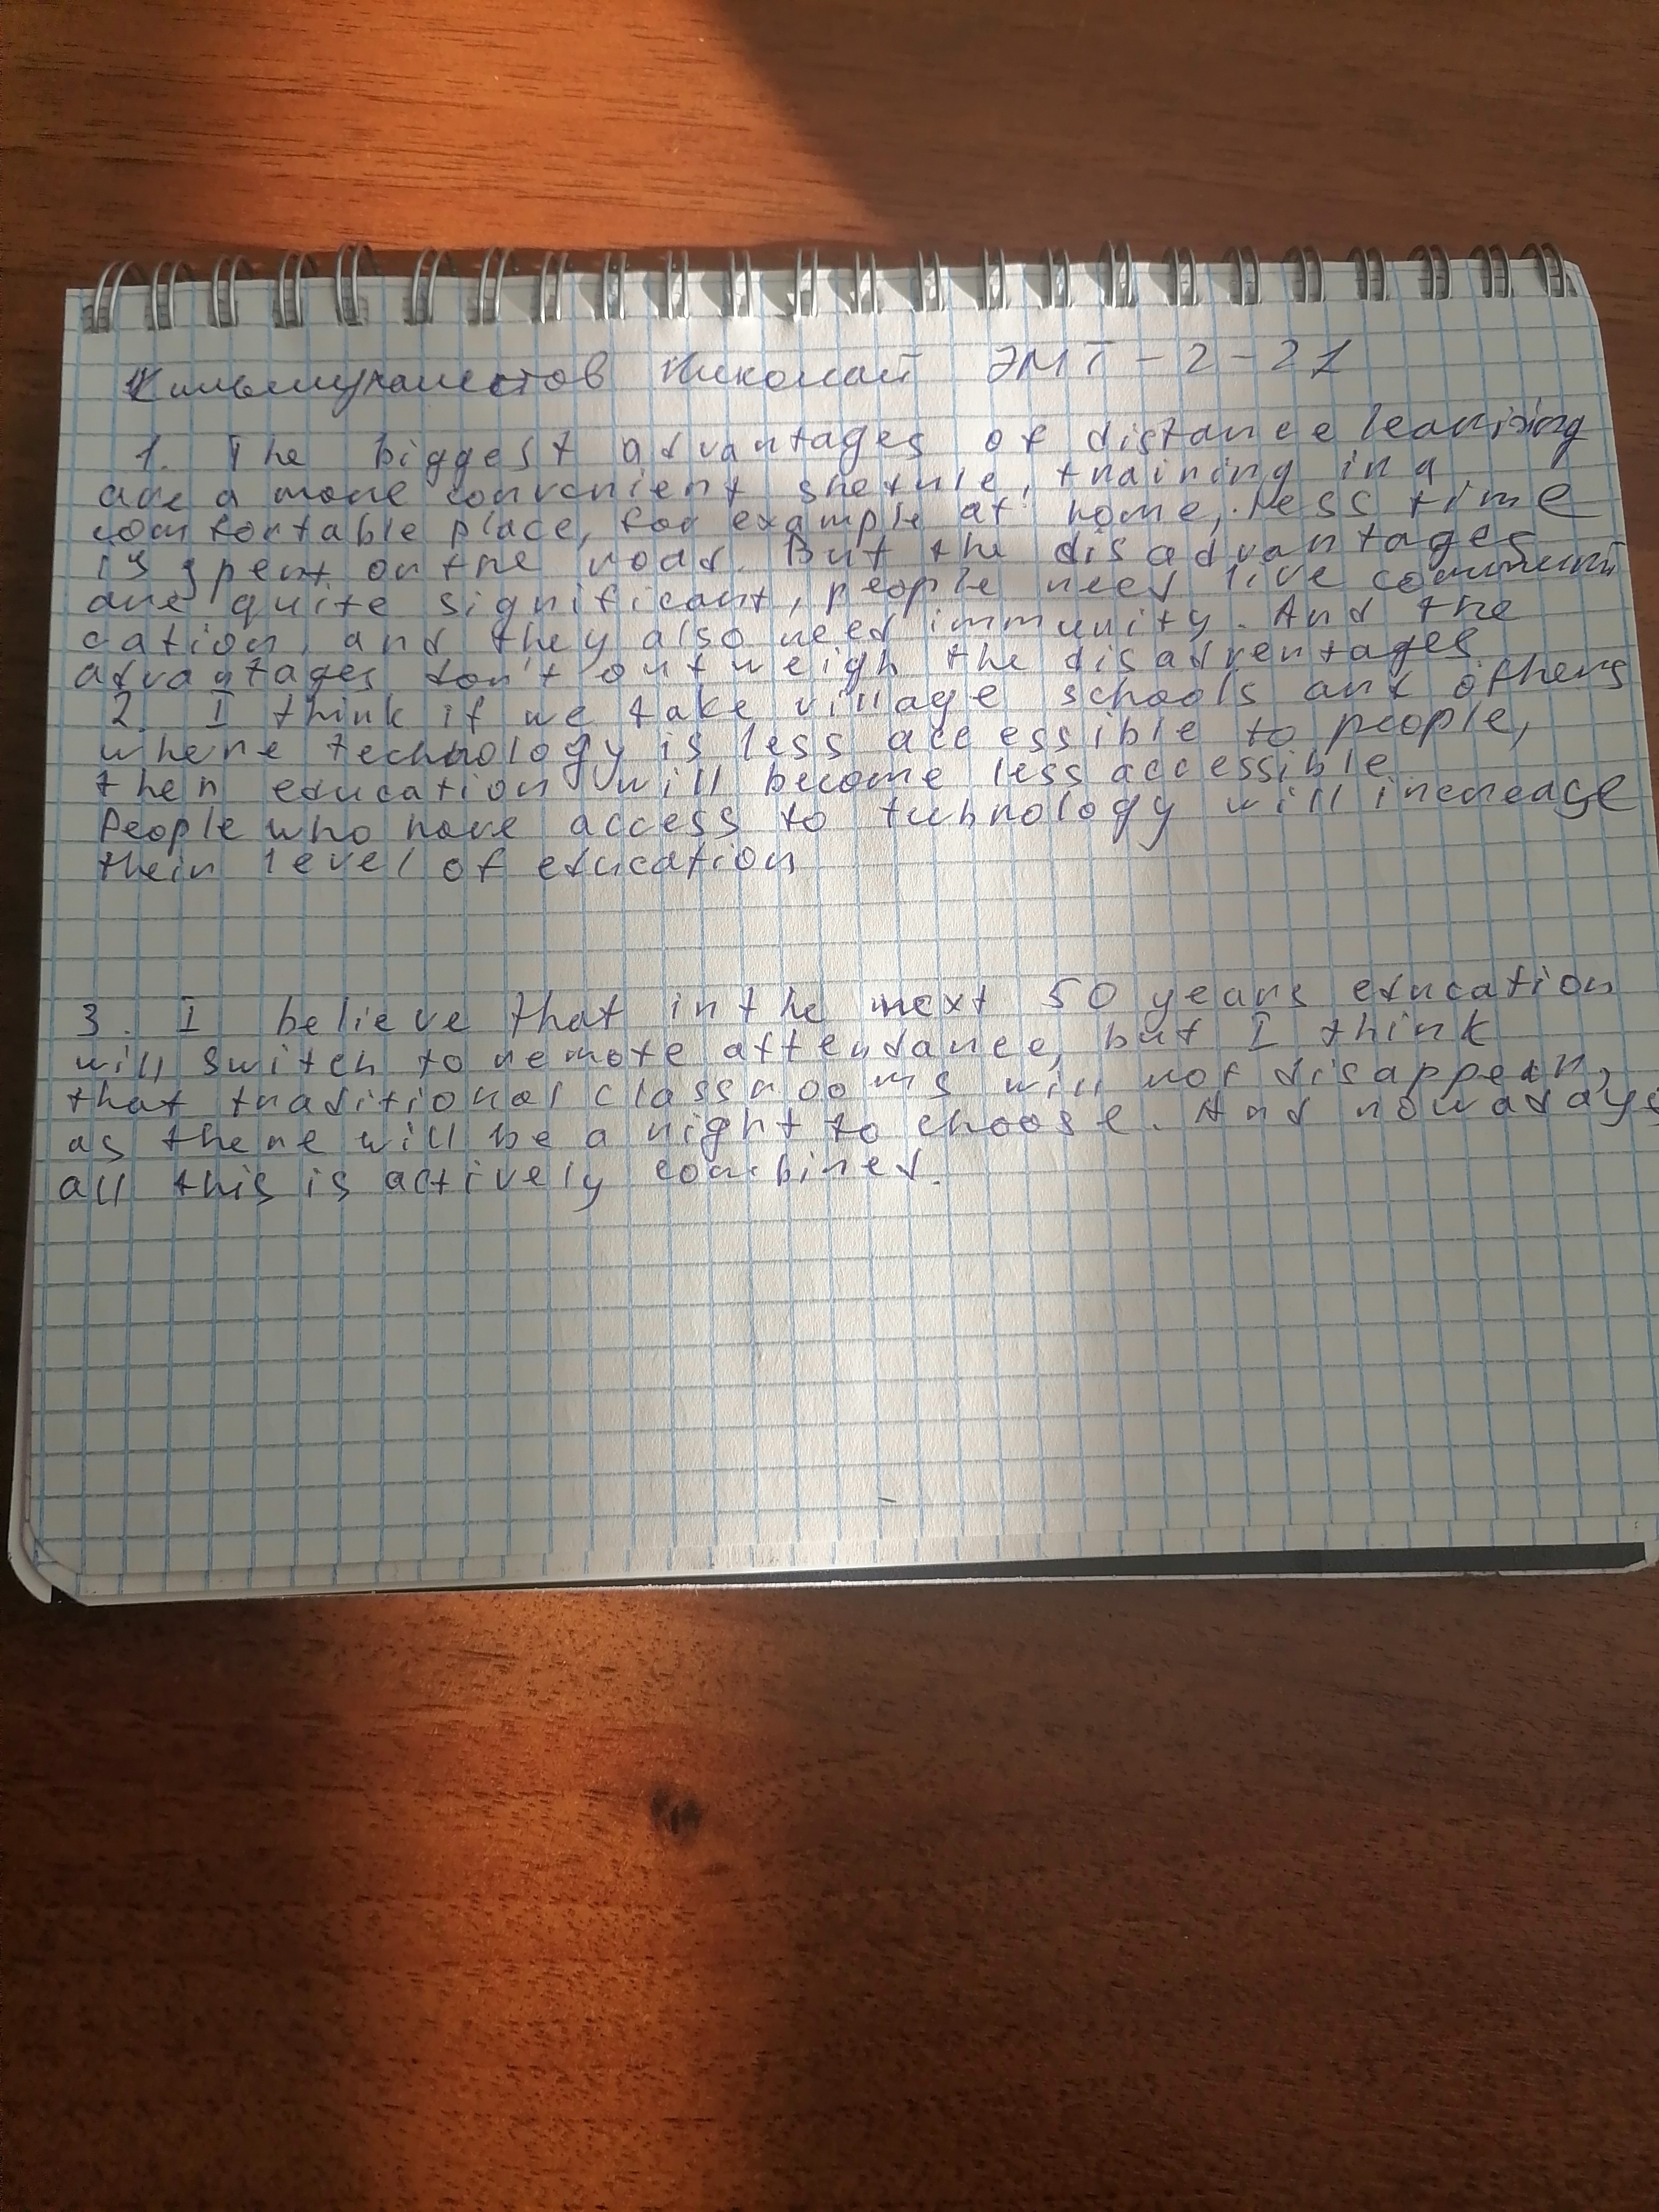 Николай ЭМТ-2-21
1. The biggest advantages of distance learning
are a more convenient shedule, training in a
comfortable place, for example at home, less time
is spent on the road. But the disadvantages
are quite significant, people need live communi
cation, and they also need immunity. And the
advantages don't outweigh the disadventages
2. I think if we take village schools and others
where technology is less accessible to people,
then education will become less accessible
People who have access to tehnology will increase
their level of education
3. I believe that in the next 50 years education
will switch to remote attendance, but I think
that traditional classrooms will not disappear,
as there will be a right to choose. And nowadays
all this is actively combined.